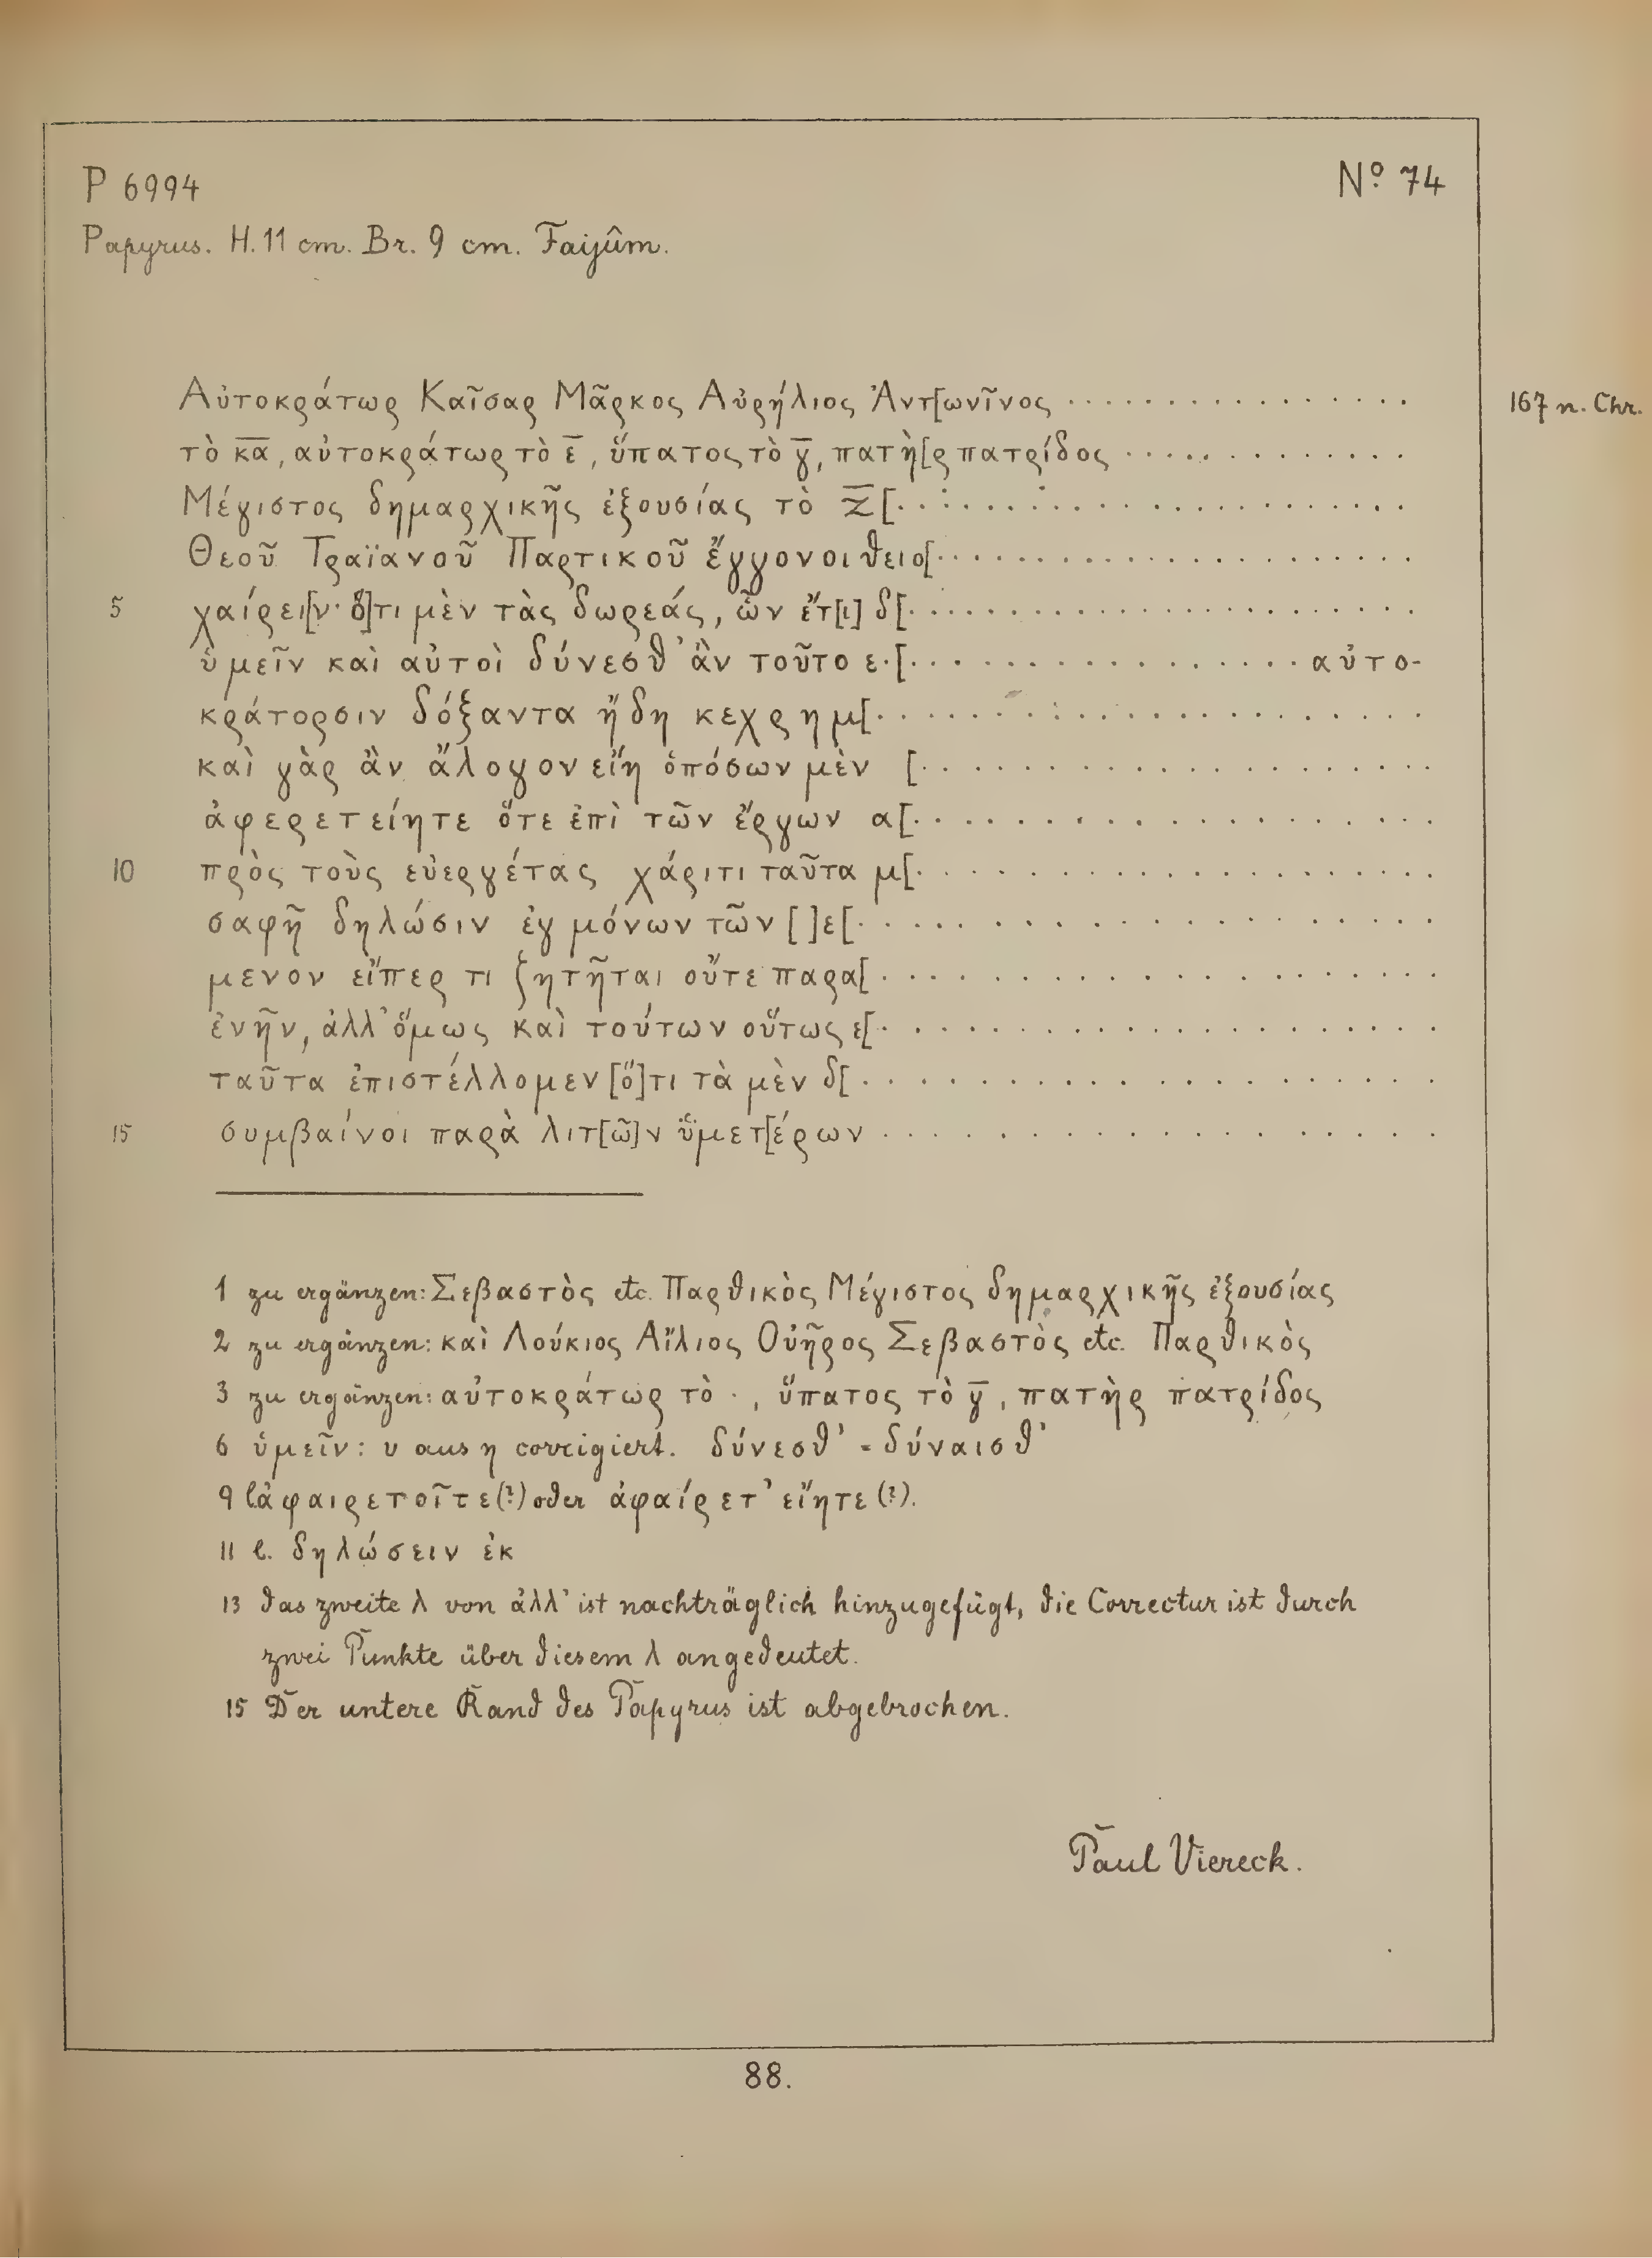 P 6994
Nº 74
Papyrus. H. 11 cm. Br. 9 cm. Faijûm.
Αὐτοκράτωρ Καῖσαρ Μᾶρκος Αὐρήλιος Ἀντ[ωνῖνος . . . . . . . . . . . . . . . .
167 n. Chr.
τὸ κ̅α̅, αὐτοκράτωρ τὸ ε̅, ὕπατος τὸ γ̅, πατὴ[ρ πατρίδος . . . . . . . . . . . . . .
Μέγιστος δημαρχικῆς ἐξουσίας τὸ Ζ̅[. . . . . . . . . . . . . . . . . . . . . . .
Θεοῦ Τραϊανοῦ Παρτικοῦ ἔγγονοι θειο[. . . . . . . . . . . . . . . . . . . . .
5 χαίρει[ν· ὅ]τι μὲν τὰς δωρεάς, ὧν ἔτ[ι] δ[. . . . . . . . . . . . . . . . . . . . . .
ὑμεῖν καὶ αὐτοὶ δύνεσθ’ ἂν τοῦτο ε·[. . . . . . . . . . . . . . . . . αὐτο-
κράτορσιν δόξαντα ἤδη κεχρημ[. . . . . . . . . . . . . . . . . . . . . .
καὶ γὰρ ἂν ἄλογον εἴη ὁπόσων μὲν [. . . . . . . . . . . . . . . . . . . . .
ἀφερετείητε ὅτε ἐπὶ τῶν ἔργων α[. . . . . . . . . . . . . . . . . . . . .
10 πρὸς τοὺς εὐεργέτας χάριτι ταῦτα μ[. . . . . . . . . . . . . . . . . . . .
σαφῆ δηλώσιν ἐγ μόνων τῶν [ ]ε[. . . . . . . . . . . . . . . . . . . . .
μενον εἴπερ τι ζητῆται οὔτε παρα[. . . . . . . . . . . . . . . . . . . .
ἐνῆν, ἀλλ’ ὅμως καὶ τούτων οὕτως ε[. . . . . . . . . . . . . . . . . . . .
ταῦτα ἐπιστέλλομεν [ὅ]τι τὰ μὲν δ[. . . . . . . . . . . . . . . . . . . .
15 συμβαίνοι παρὰ λιτ[ῶ]ν ὑ̈μετ[έρων . . . . . . . . . . . . . . . . . . .
1 zu ergänzen: Σεβαστὸς etc. Παρθικὸς Μέγιστος δημαρχικῆς ἐξουσίας
2 zu ergänzen: καὶ Λούκιος Αἴλιος Οὐῆρος Σεβαστὸς etc. Παρθικὸς
3 zu ergänzen: αὐτοκράτωρ τὸ · , ὕπατος τὸ γ̅, πατὴρ πατρίδος
6 ὑμεῖν: υ aus η corrigiert. δύνεσθ’ = δύναισθ’
9 l. ἀφαιρετοῖτε (?) oder ἀφαίρετ’ εἴητε (?).
11 l. δηλώσειν ἐκ
13 das zweite λ von ἀλλ’ ist nachträglich hinzugefügt, die Correctur ist durch
zwei Punkte über diesem λ angedeutet.
15 Der untere Rand des Papyrus ist abgebrochen.
Paul Viereck.
88.